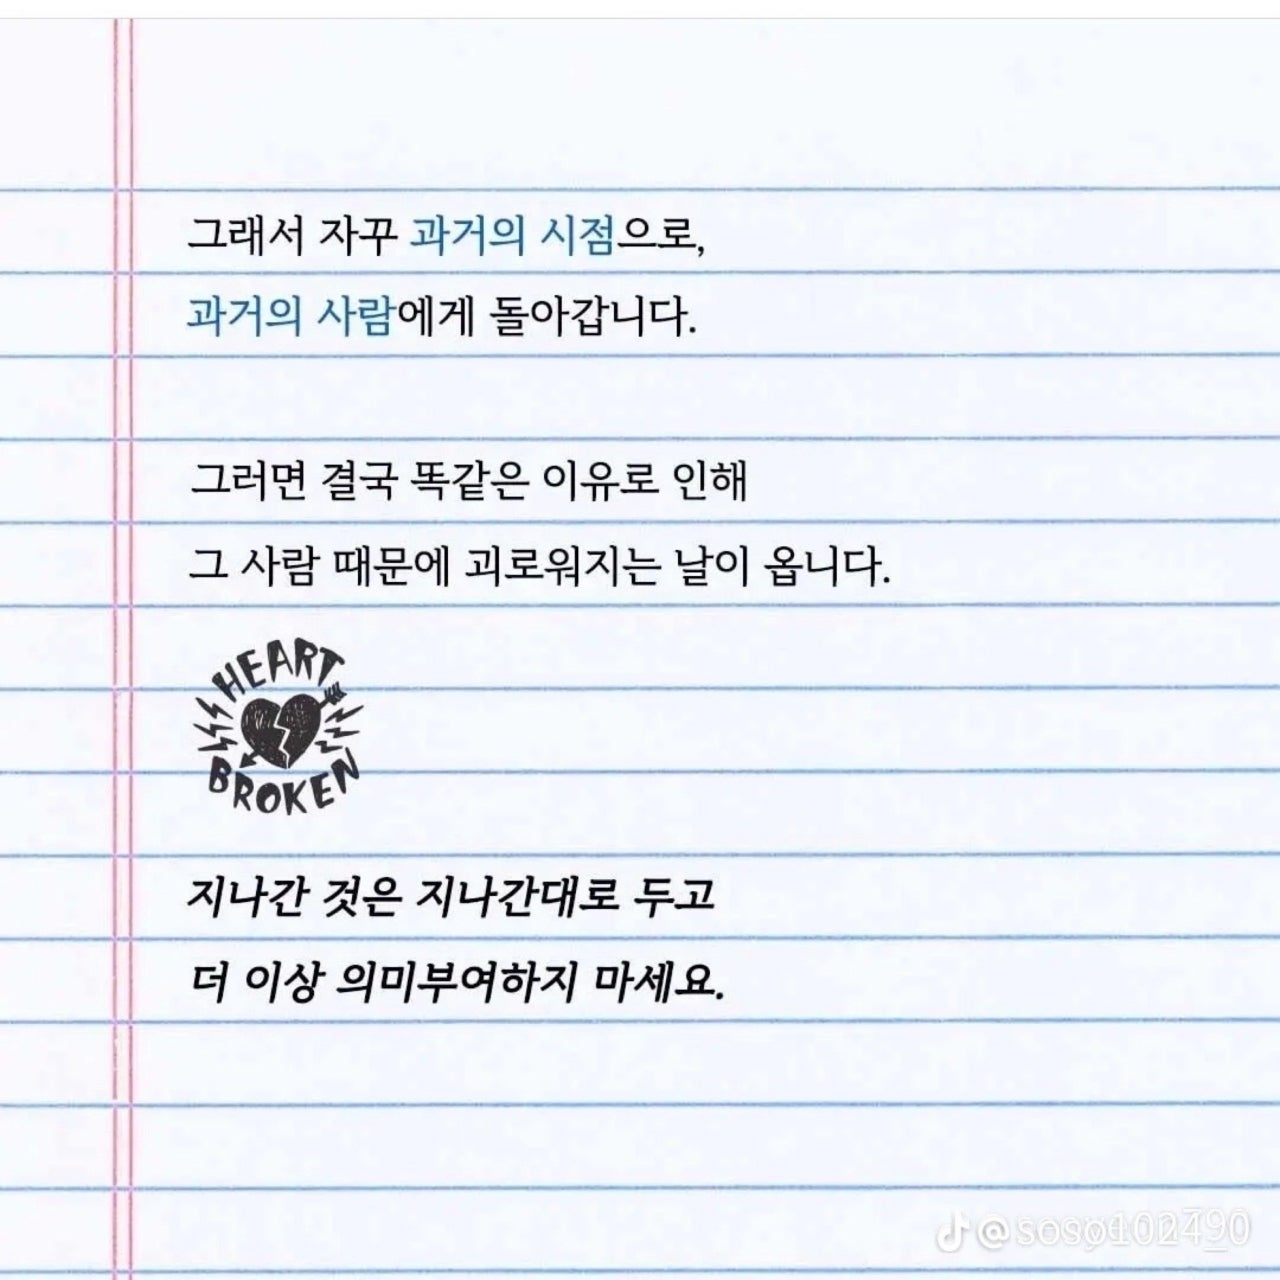 그래서 자꾸 과거의 시점으로,
과거의 사람에게 돌아갑니다.
그러면 결국 똑같은 이유로 인해
그 사람 때문에 괴로워지는 날이 옵니다.
HEART
BROKEN
지나간 것은 지나간대로 두고
더 이상 의미부여하지 마세요.